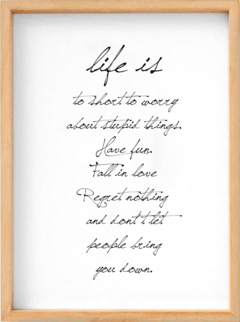 life is
to short to worry
about stupid things.
Have fun.
Fall in love
Regret nothing
and don't let
people bring
you down.